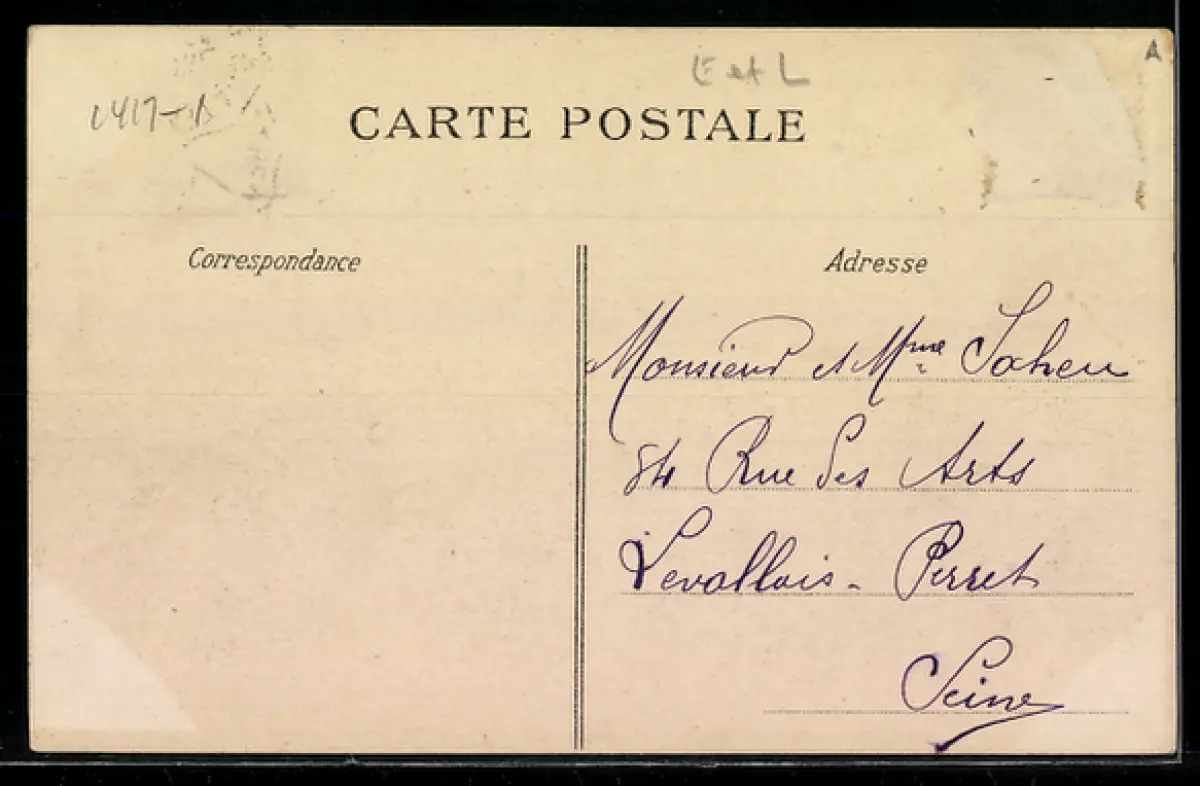 A
E et L
CARTE POSTALE
Correspondance
Adresse
Monsieur et Mme
84 Rue des Arts
Levallois - Perret
Seine